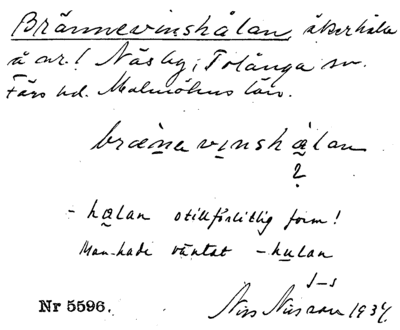 Brännevinshålan, åkerhåla
å nr. 1 Näsby, Tolånga sn.
Färs hd. Malmöhus län.
bræna vinshålan
?
- halan otillförlitlig form!
Man hade väntat -hulan
J-s
Nr 5596. Nils Nilsson 1934.